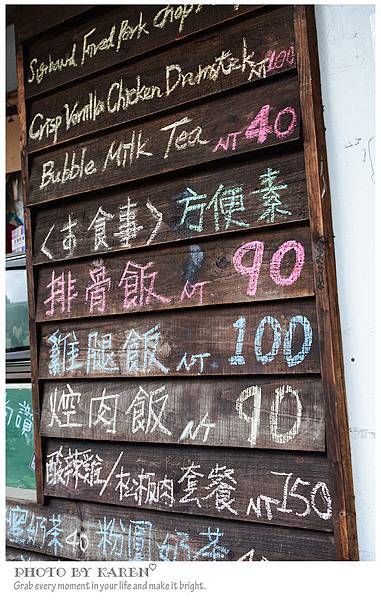 Signboard Fried Pork Chop
Crisp Vanilla Chicken Drumstick NT 100
Bubble Milk Tea NT 40
〈お食事〉方便素
排骨飯 NT 90
雞腿飯 NT 100
焢肉飯 NT 90
酸辣雞/椒麻肉套餐 NT 150
蜜奶茶40 粉圓奶茶
PHOTO BY KAREN♡
Grab every moment in your life and make it bright.